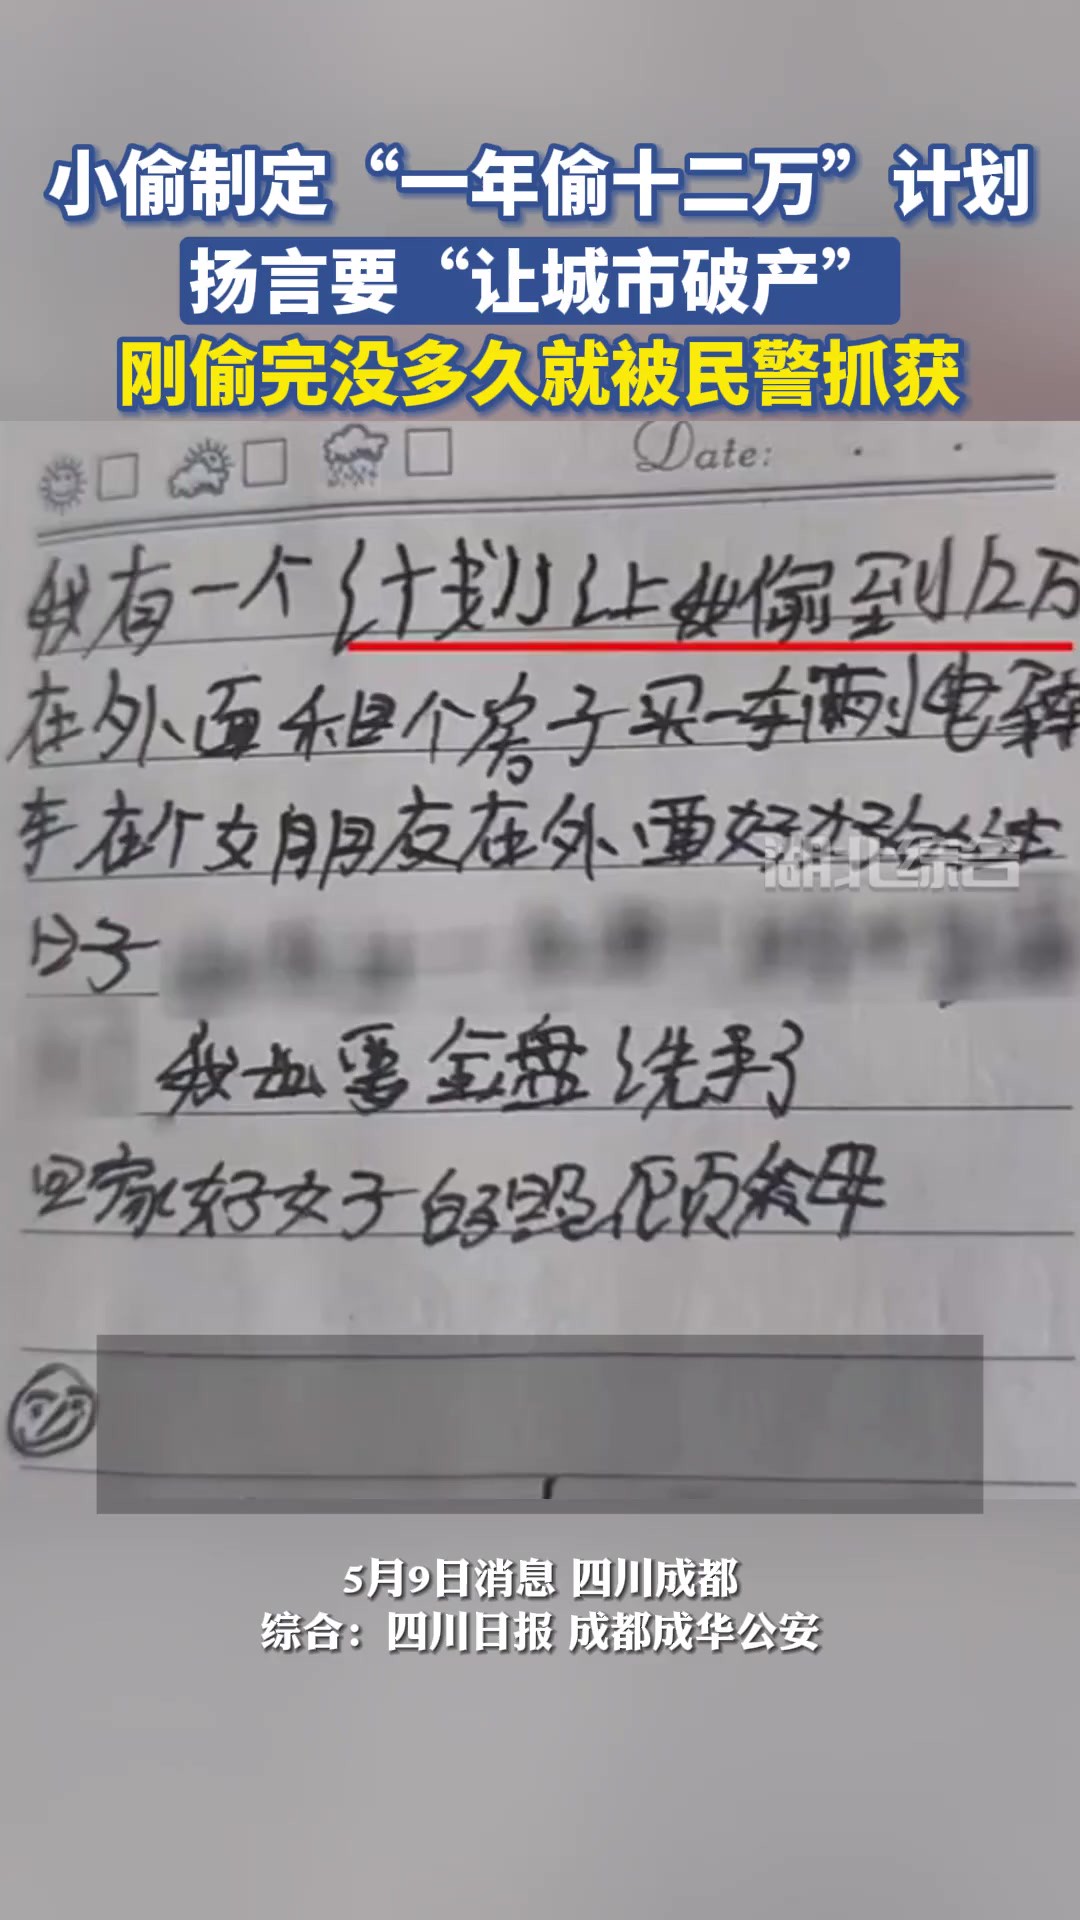 小偷制定“一年偷十二万”计划
扬言要“让城市破产”
刚偷完没多久就被民警抓获
Date:
我有一个计划让我偷到12万
在外面租个房子买一车辆电
车在个女朋友在外面好好
日子
湖北综合
我也要金盘洗手了
回家好子的照顾父母
5月9日消息 四川成都
综合：四川日报 成都成华公安